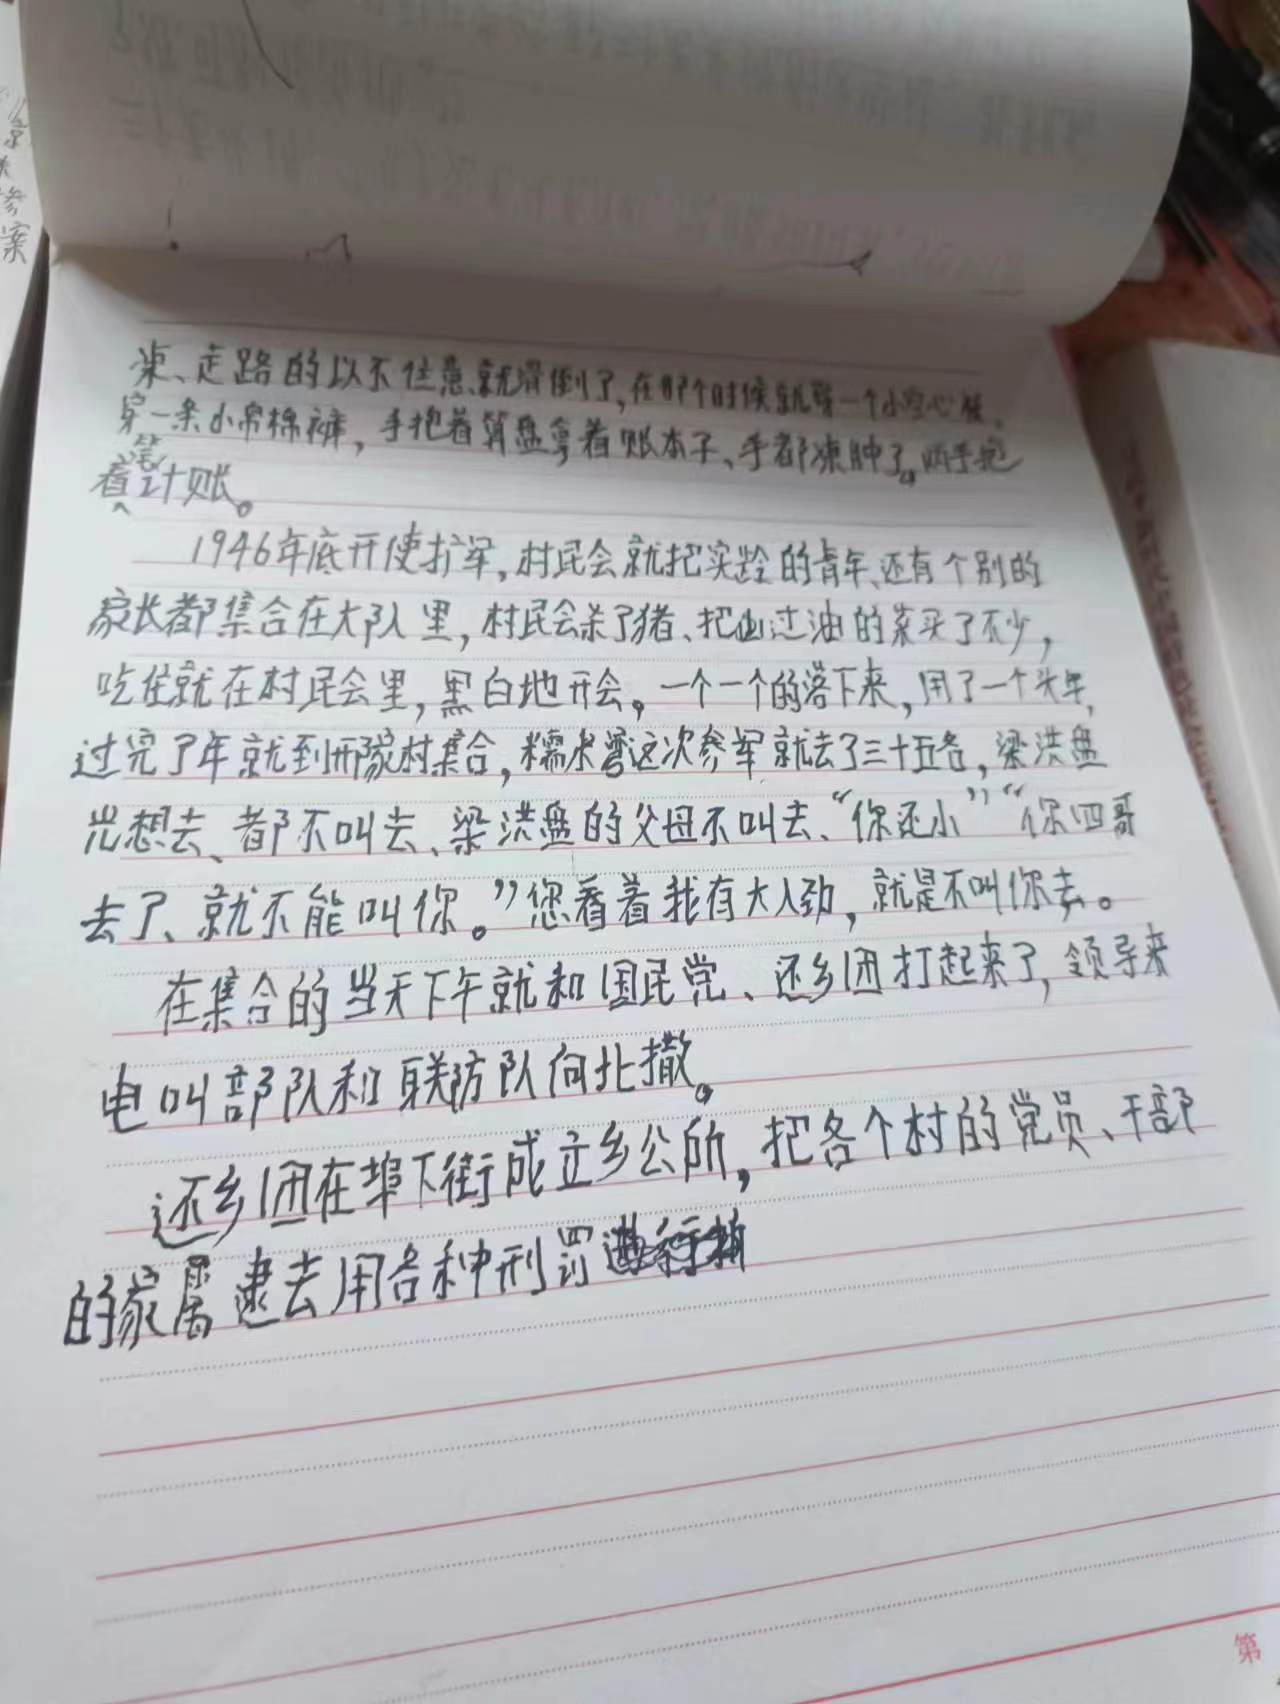 走路的以不住意就滑倒了，在那个时候就穿一个小空心袄，
穿一条小常棉裤，手抱着算盘拿着账本子、手都冻肿了。两手抱
着笔计账。
1946年底开使扩军，村民会就把实龄的青年、还有个别的
家长都集合在大队里，村民会杀了猪、把山过油的菜买了不少，
吃住就在村民会里，黑白地开会。一个一个的落下来，用了一个头年，
过完了年就到邢家村集合，糯米湾这次参军就去了三十五名，梁洪盘
想去、都不叫去、梁洪盘的父母不叫去、“你还小”“你四哥
去了、就不能叫你。”您看着我有大人劲，就是不叫你去。
在集合的当天下午就和国民党、还乡团打起来了，领导来
电叫部队和联防队向北撤。
还乡团在埠下街成立乡公所，把各个村的党员、干部
的家属逮去用各种刑罚
第